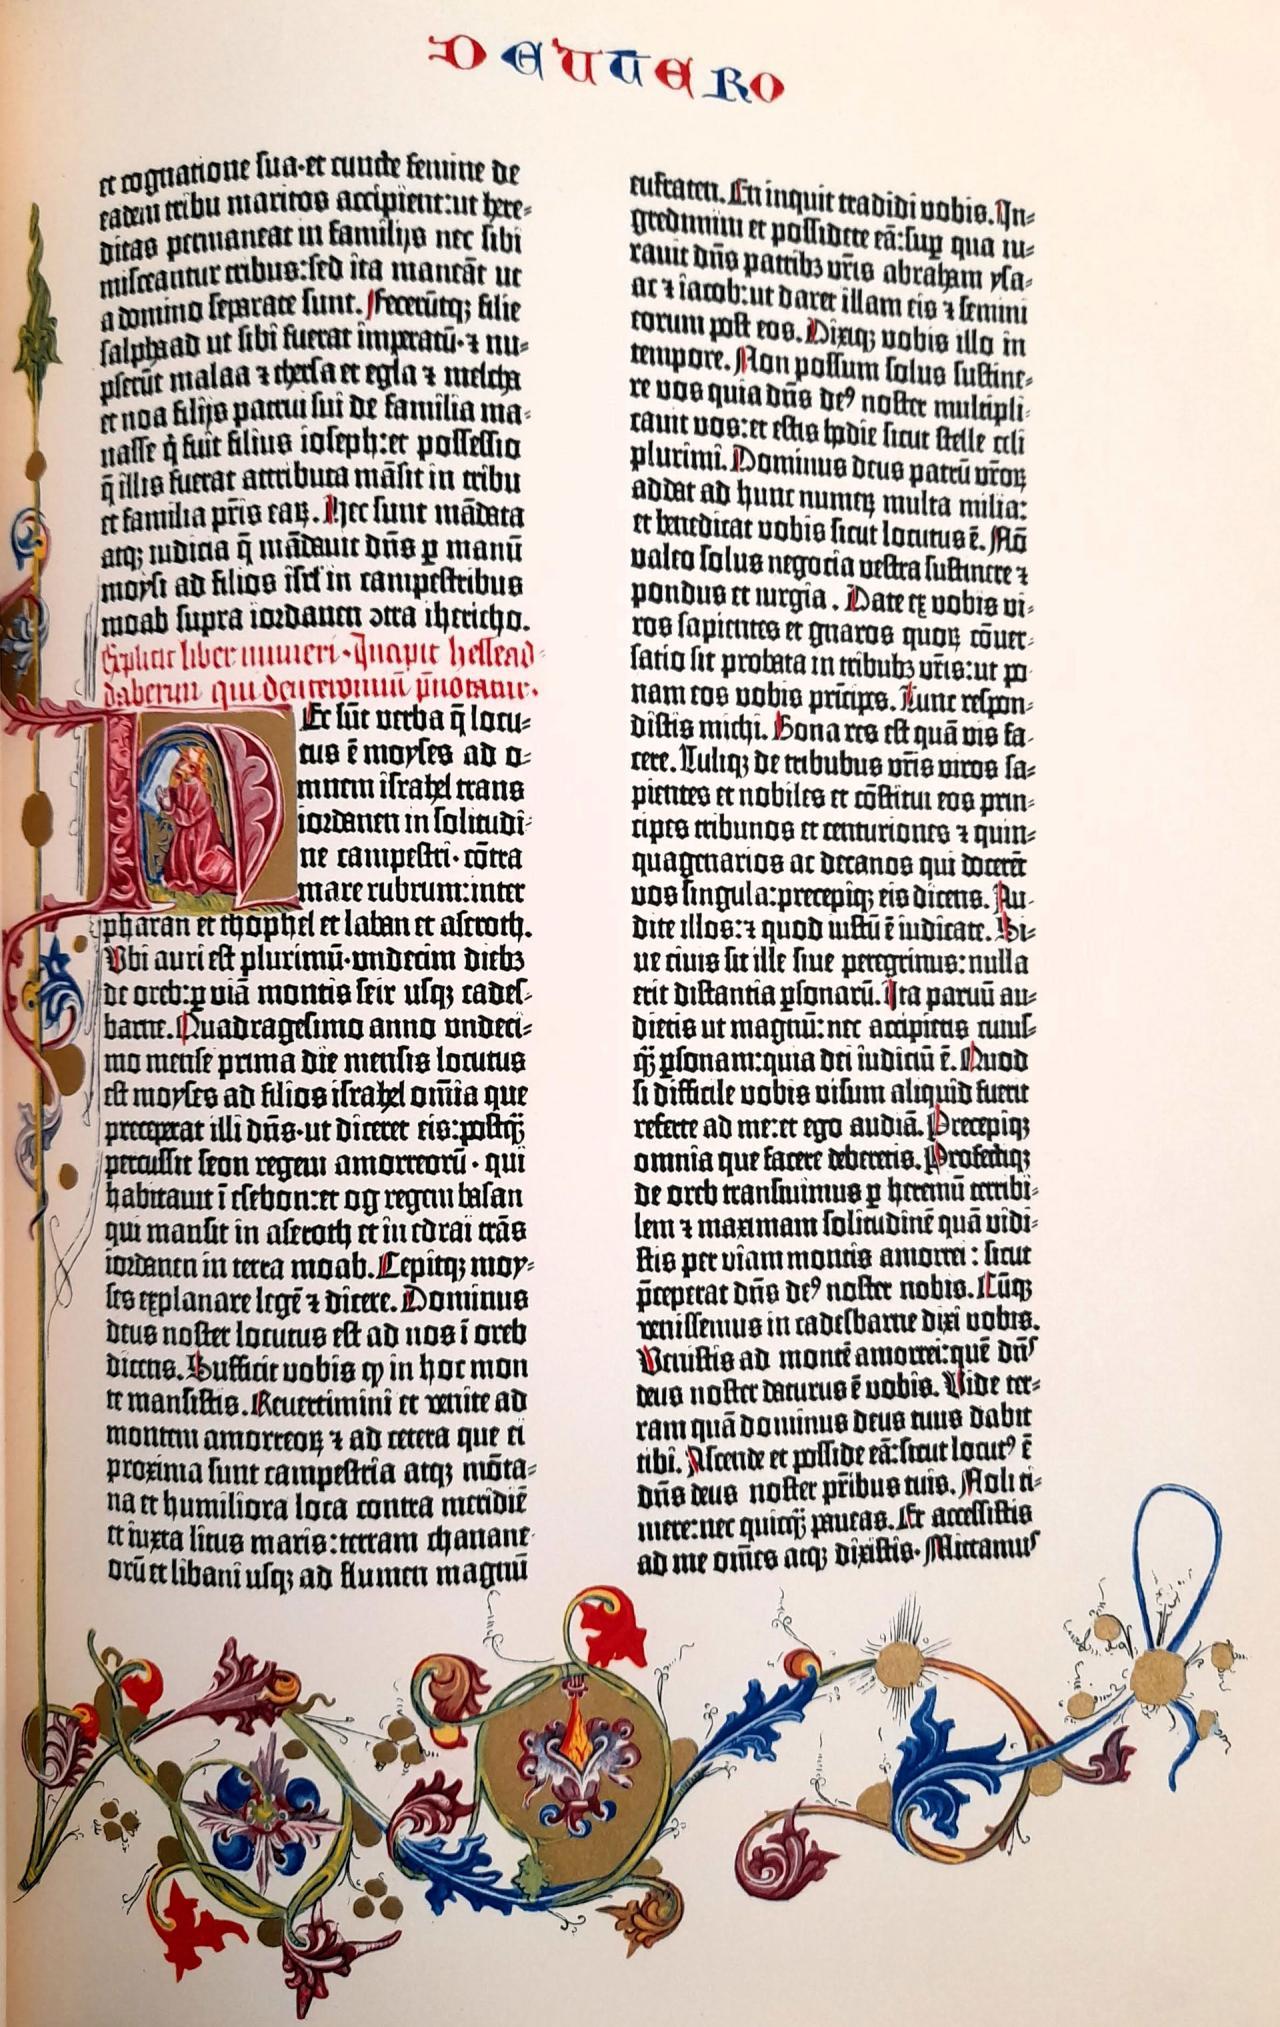 DEUTERO
et cognatione sua·et cuncte femine de
eadem tribu maritos accipient:ut here-
ditas permaneat in familijs nec sibi
misceantur tribus:sed ita maneāt ut
a domino separate sunt. Fecerūtqꝫ filie
salphaad ut sibi fuerat imperatū·⁊ nu-
pserūt malaa ⁊ thersa et egla ⁊ melcha
et noa filijs patrui sui de familia ma-
nasse q̇ fuit filius ioseph:et possessio
q̄ illis fuerat attributa māsit in tribu
et familia pr̄is eaꝝ. Hec sunt mādata
atqꝫ iudicia q̄ mādauit dn̄s ꝑ manū
moysi ad filios isrl̓ in campestribus
moab supra iordanen ↄtra ihericho.
Explicit liber numeri·Incipit hellead-
dabarim qui deuteronomiū p̄notatur.
HEc sūt verba q̄ locu-
tus ē moyses ad o-
mnem israhel trans
iordanen in solitudi-
ne campestri·cōtra
mare rubrum:inter
pharan et thophel et laban et aseroth.
Ubi auri est plurimū·undecim diebꝫ
de oreb:ꝑ viā montis seir usqꝫ cades-
barne. Quadragesimo anno undeci-
mo mense prima die mensis locutus
est moyses ad filios israhel om̄ia que
preceperat illi dn̄s·ut diceret eis:postqꝫ̄
percussit seon regem amorreorū·qui
habitauit ī esebon:et og regem basan
qui mansit in aseroth et in edrai trās
iordanen in terra moab. Cepitqꝫ moy-
ses explanare legē ⁊ dicere. Dominus
deus noster locutus est ad nos ī oreb
dicens. Sufficit vobis ꝙ in hoc mon
te mansistis. Reuertimini et venite ad
montem amorreoꝝ ⁊ ad cetera que ei
proxima sunt campestria atqꝫ mōta-
na et humiliora loca contra meridiē
et iuxta litus maris:terram chanane-
orū et libani usqꝫ ad flumen magnū
eufraten. En inquit tradidi vobis. In-
gredimini et possidete eā:sup̱ qua iu-
rauit dn̄s patribꝫ vr̄is abraham ysa-
ac ⁊ iacob:ut daret illam eis ⁊ semini
eorum post eos. Dixiqꝫ vobis illo in
tempore. Non possum solus sustine-
re vos quia dn̄s deꝰ noster multipli-
cauit vos:et estis hodie sicut stelle celi
plurimi. Dominus deus patrū vr̄oꝝ
addat ad hunc numeꝝ multa milia:
et benedicat vobis sicut locutus ē. Nō
valeo solus negocia vestra sustinere ⁊
pondus et iurgia. Date ex vobis vi-
ros sapientes et gnaros quoꝝ cōuer-
satio sit probata in tribubꝫ vr̄is:ut po-
nam eos vobis prīcipes. Tunc respon-
distis michi. Bona res est quā vis fa-
cere. Tuliqꝫ de tribubus vr̄is viros sa-
pientes et nobiles et cōstitui eos prin-
cipes tribunos et centuriones ⁊ quin-
quagenarios ac decanos qui docerēt
vos singula:precepiqꝫ eis dicens. Au-
dite illos:⁊ quod iustū ē iudicate. Si-
ue ciuis sit ille siue peregrinus:nulla
erit distantia ꝑsonarū. Ita paruū au-
dietis ut magnū:nec accipietis cuius-
qꝫ̄ ꝑsonam:quia dei iudiciū ē. Quod
si difficile vobis visum aliquid fuerit
referte ad me:et ego audiā. Precepiqꝫ
omnia que facere deberetis. Profectiqꝫ
de oreb transiuimus ꝑ heremū terribi-
lem ⁊ maximam solitudinē quā vidi-
stis per viam montis amorrei: sicut
p̄ceperat dn̄s deꝰ noster nobis. Cūqꝫ
venissemus in cadesbarne dixi vobis.
Venistis ad montē amorrei:quē dn̄s
deus noster daturus ē vobis. Vide ter-
ram quā dominus deus tuus dabit
tibi. Ascende et posside eā:sicut locutꝰ ē
dn̄s deus noster pr̄ibus tuis. Noli ti-
mere:nec quicqꝫ̄ paueas. Et accessistis
ad me om̄es atqꝫ dixistis. Mittamus